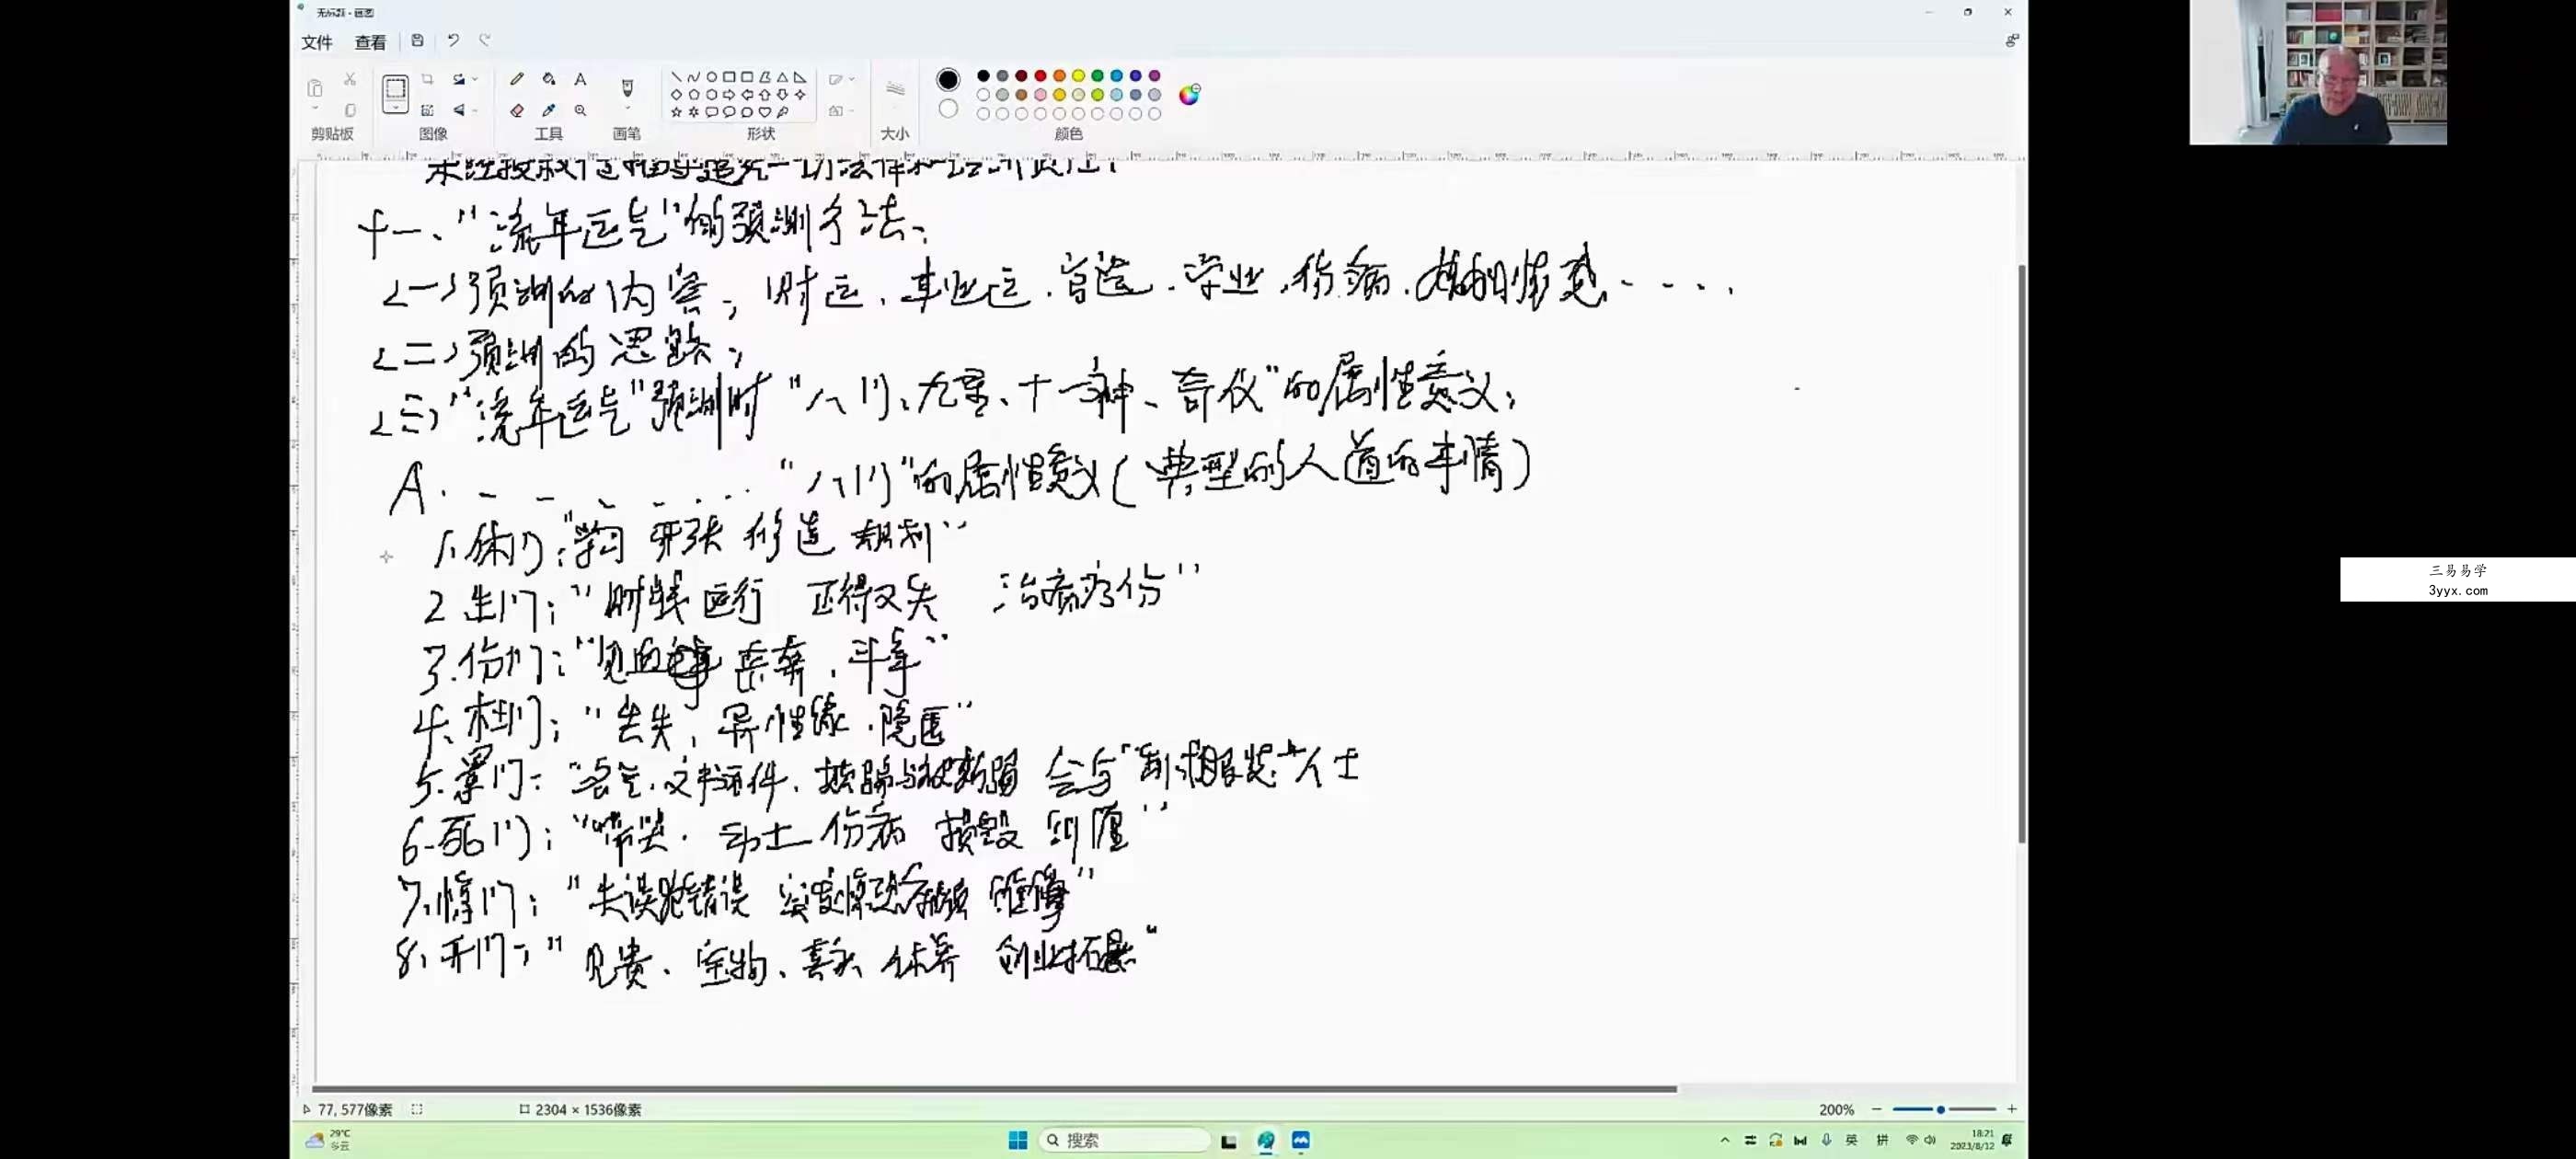 无标题 - 画图
文件 查看
剪贴板 图像 工具 画笔 形状 大小 颜色
十一、"流年运气"的预测方法:
<一>预测的内容: 财运、事业运、官运、学业、伤病、婚姻情感.....
<二>预测的思路:
<三>"流年运气"预测时"八门、九星、十一神、奇仪"的属性意义:
A. "八门"的属性意义(典型的人道的事情)
1.休门:"学习 开张 修造 规划"
2.生门:"财钱运行 正得又失 治病疗伤"
3.伤门:"见血 丢弃、斗争"
4.杜门:"丢失、异性缘、隐匿"
5.景门: 文书证件、 会与"制式服装"人士
6.死门:"带哭、动土 伤病 损毁"
7.惊门:"失误犯错误"
8.开门:"见贵、宝物、喜庆 休养 创业拓展"
77, 577像素
2304 × 1536像素
200%
29°C
多云
搜索
英 拼
18:21
2023/8/12
三易易学
3yyx.com